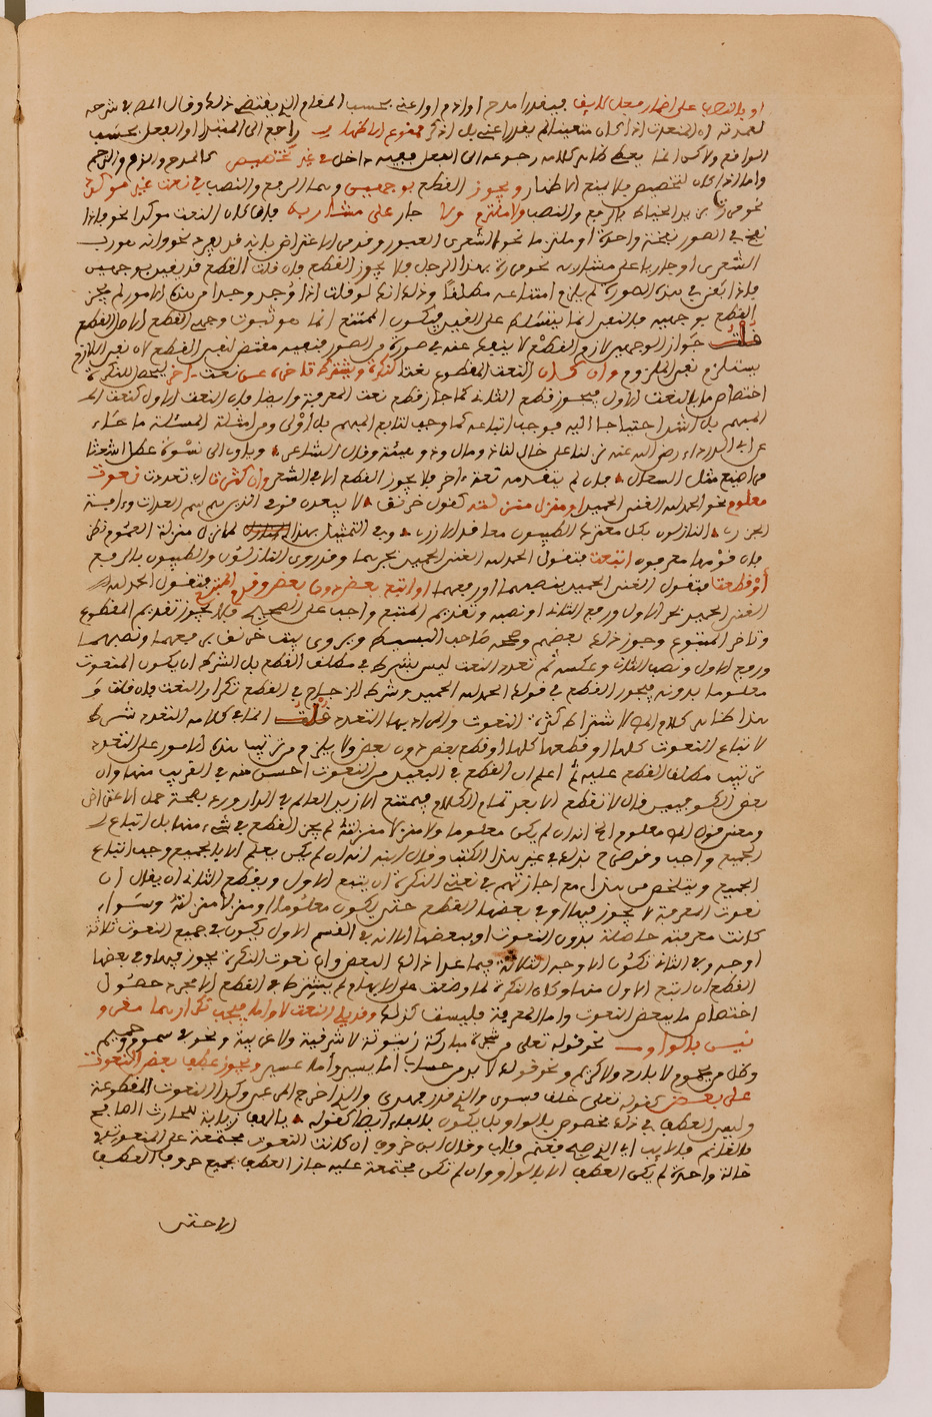 او بالنصب على اضمار فعل لايق فيقدر امدح او اذم او اعني بحسب المقام الذي يقتضي ذلك وقال المص في شرح
لعمدته ان المنعوت اذا كان متعينا لم يقدر اعني بل اذكر ممنوع الاظهار راجع الى المبتدا او الفعل بحسب
الواقع ولاكن انما يعطي ظاهر كلامه رجوعه الى الفعل فقيده داخل في غير تخصيص كالمدح والذم والترحم
واما اذا كان لتخصيص فلا يمنع الاظهار ويجوز القطع بوجهين وهما الرفع والنصب في نعت غير موكد
نحو مررت بزيد الخياط بالرفع والنصب ولا ملتزم ولا جار على مشار به فان كان النعت موكدا نحو فاذا
نفخ في الصور نفخة واحدة او ملتزما نحو الشعرى العبور
الشعرى او جاريا على مشار به نحو مررت بهذا الرجل فلا يجوز القطع فان قلت القطع قد يقيد بوجهين
فاذا نفي في هذه الصورة لم يلزم امتناعه مطلقا وذلك انك لو قلت اذا وجد وجد امر من هذه الامور لم يجز
القطع بوجهيه فالنفي انما يتسلط على القيد فيكون الممتنع انما هو ثبوت وجهي القطع لا اصل القطع
قلت جواز الوجهين لازم للقطع لا ينفك عنه في صورة من الصور فنفيه مقتض لنفي القطع لان نفي اللازم
يستلزم نفي الملزوم وان كان النعت المقطوع نعتا لنكرة ويشترط تاخره عن نعت اخر ليحصل للنكرة
اختصاص ما بالنعت الاول فيجوز قطع الثاني كما جاز قطع نعت المعرفة وايضا فان النعت الاول كنعت
المبهم بل اشد احتياجا اليه فوجب اتباعه كما وجب لتابع المبهم بل اولى ومن امثلة المسئلة ما جاء
عن ابي الدرداء رضي الله عنه نزلنا على خال لنا ذو مال وذو هيئة وقال الشاعر ويأوي الى نسوة عطل وشعثا
مراضيع مثل السعالي فان لم يتقدمه نعت ءاخر فلا يجوز القطع الا في الشعر وان كثرت اي تعددت نعوت
معلوم نحو الحمد لله الغني الحميد او منزل منزلته كقول خرنق لا يبعدن قومي الذين هم سم العداة وءافة
الجزر النازلون بكل معترك والطيبون معاقد الازر وفي التمثيل بهذا
فان قومها معروفون اتبعت فتقول الحمد لله الغني الحميد بجرهما وقد روي النازلون والطيبون بالرفع
او قطعا فتقول الغني الحميد بنصبهما او رفعهما او اتبع بعض دون بعض وقدم المتبع فتقول الحمد لله
الغني الحميد بجر الاول ورفع الثاني او نصبه وتقديم المتبع واجب على الصحيح فلا يجوز تقديم المقطوع
وتاخر المتبوع وجوز ذلك بعضهم وصححه صاحب البسيط ويروى بيت خرنق برفعهما ونصبهما
ورفع الاول ونصب الثاني وعكسه ثم تعدد النعت ليس بشرط في مطلق القطع بل الشرط ان يكون المنعوت
معلوما بدونه فيجوز القطع في قولك الحمد لله الحميد وشرط الزجاج في القطع تكرار النعت فان قلت
هذا ظاهر كلام المص لاشتراطه كثرة النعوت والمراد بها التعدد قلت انما في كلامه التعدد شرط
لاتباع النعوت كلها او قطعها كلها او قطع بعض دون بعض ولا يلزم من ترتيب هذه الامور على التعدد
ترتيب مطلق القطع عليه ثم اعلم ان القطع في البعيد من النعوت احسن منه في القريب منها وان
بعض الكوفيين قال لا تقطع الا بعد تمام الكلام فيمتنع الا زيد العالم في الدار ورد بصحة جعل الاعتراض
ومعنى قول المص معلوم الخ انه ان لم يكن معلوما ولا منزلا منزلته لم يجز القطع في شيء منها بل اتباع
الجميع واجب وقد صرح بذلك في غير هذا الكتاب وقال ابنه انه ان لم يكن يعلم الا بالجميع وجب اتباع
الجميع ويتلخص من هذا مع اجازتهم في نعتي النكرة ان يتبع الاول ويقطع الثاني ان يقال ان
نعوت المعرفة لا يجوز فيها او في بعضها القطع حتى يكون معلوما او منزلا منزلته وسواء
كانت معرفته حاصلة بدون النعوت او ببعضها الا انه في القسم الاول يكون في جميع النعوت ثلاثة
اوجه وفي الثاني تكون الاوجه الثلاثة فيما عدا ذلك البعض وان نعوت النكرة يجوز فيها وفي بعضها
القطع ان اتبع الاول منها وكان النكرة لما وضعت على الابهام لم يشترط في القطع الا مجرد حصول
اختصاص ما ببعض النعوت واما المعرفة فليست كذلك وقد يلي النعت لا واما فيجب تكرارهما مقرو
نيين بالواو نحو قوله تعلى من شجرة مباركة زيتونة لا شرقية ولا غربية ونحو في سموم وحميم
وظل من يحموم لا بارد ولا كريم ونحو قولك لا بد من حساب اما يسير واما عسير ويجوز عطف بعض النعوت
على بعض كقوله تعلى خلق فسوى والذي قدر فهدى والذي اخرج المرعى وكذا النعوت المقطوعة
وليس العطف في ذلك مخصوص بالواو بل يكون بالفاء ايضا كقوله يا لهف زيابة للحارث الصابح
فالغانم فالايب اي الذي صبح فغنم فآب وقال ابن خروف ان كانت النعوت مجتمعة على المنعوت في
حالة واحدة لم يكن العطف الا بالواو وان لم تكن مجتمعة عليه جاز العطف بجميع حروف العطف
الا حتى